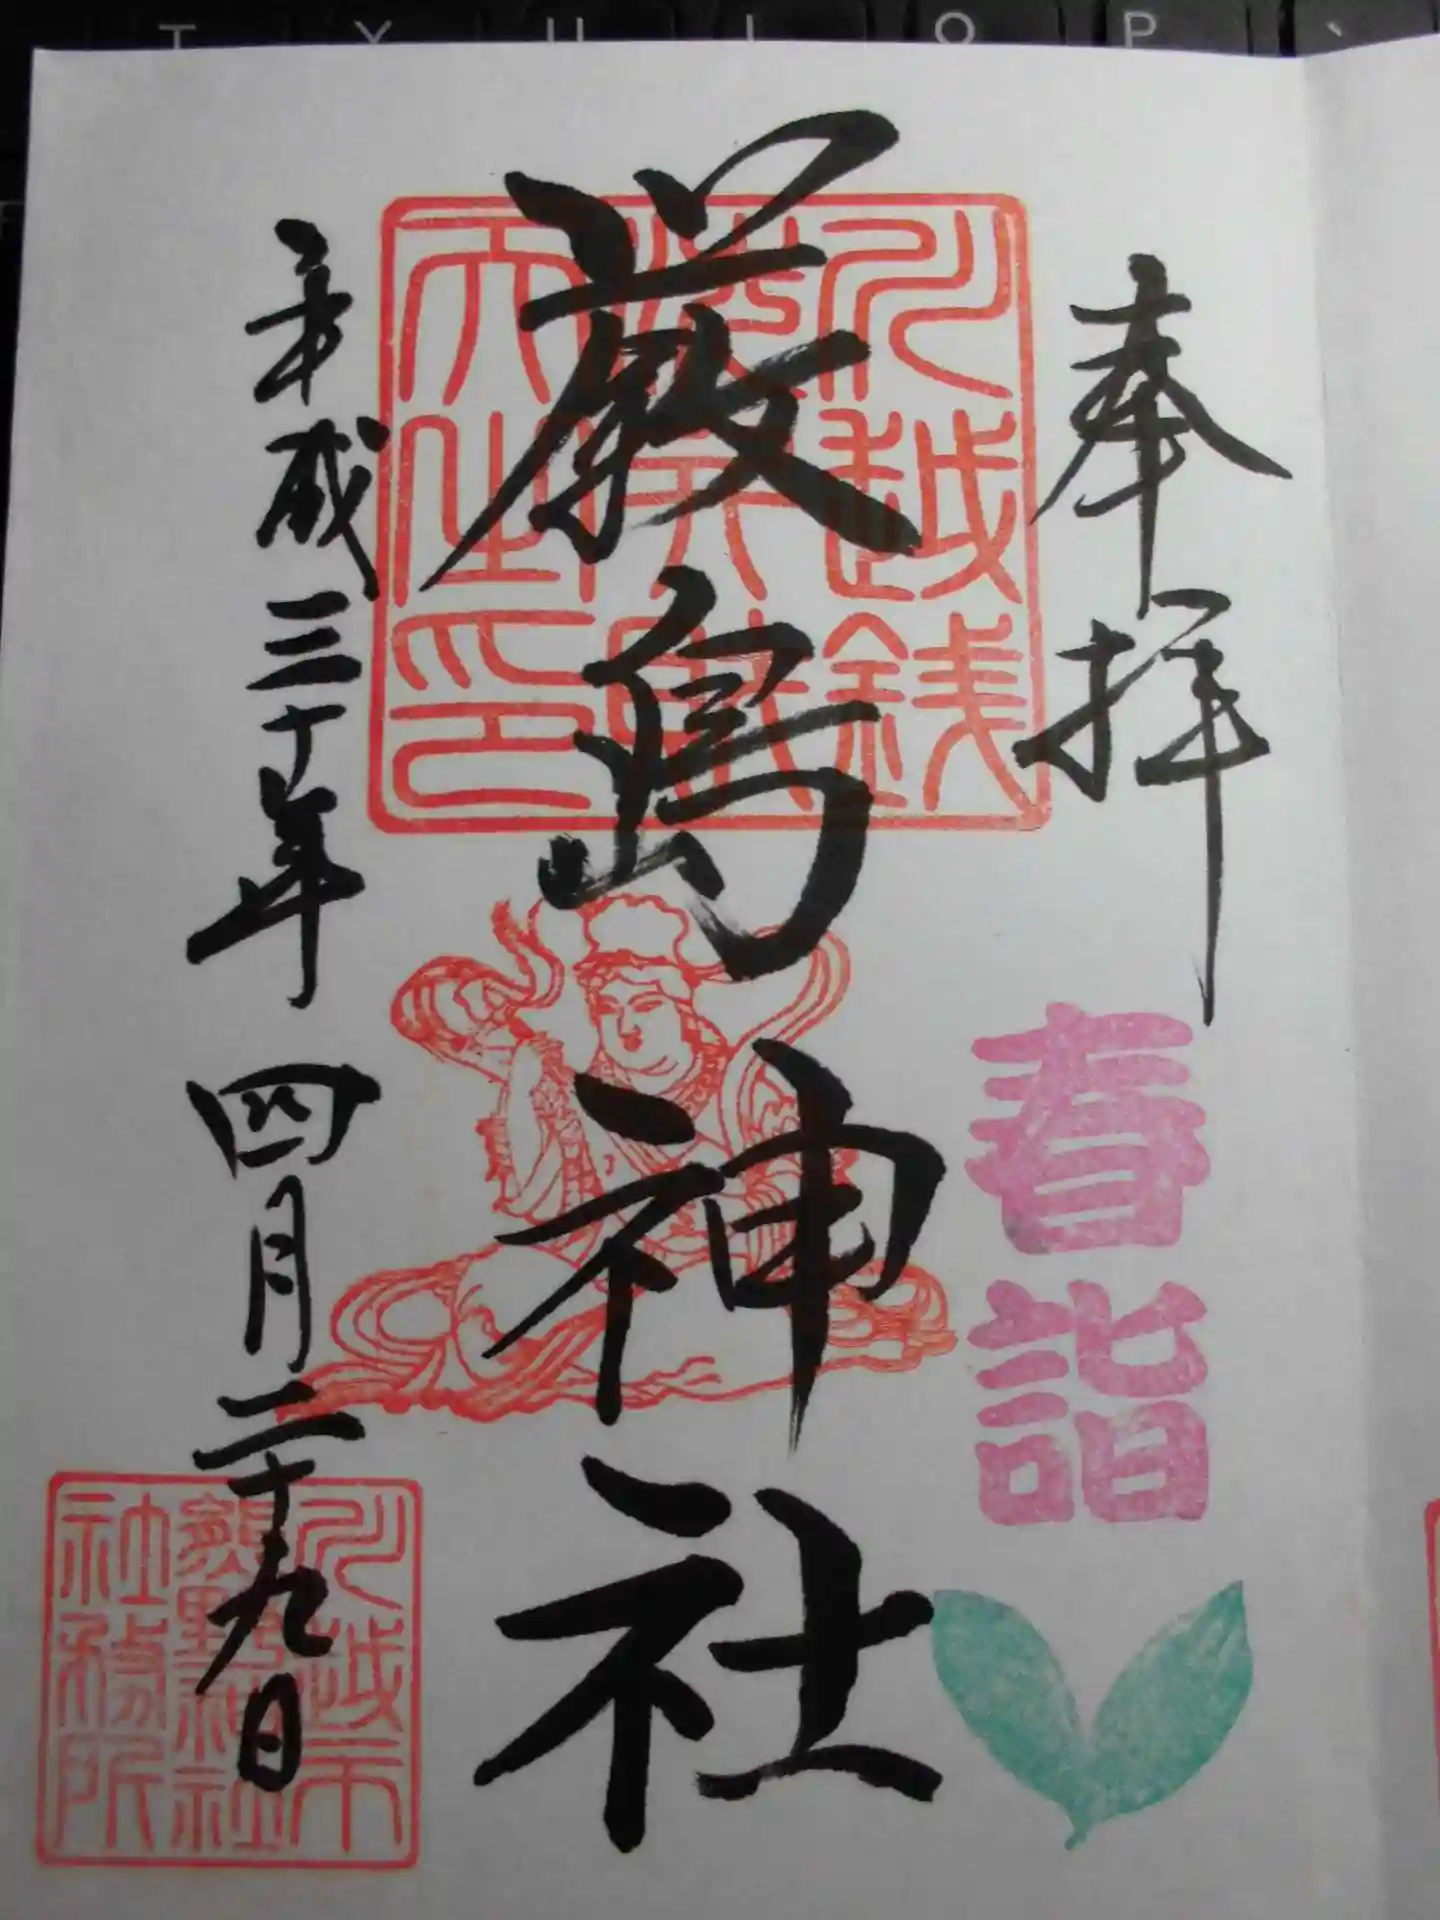 T Y U I O P
奉拝
春詣
川越銭
洗弁財
天之印
厳島神社
平成三十年 四月二十九日
川越市
熊野神社
社務所